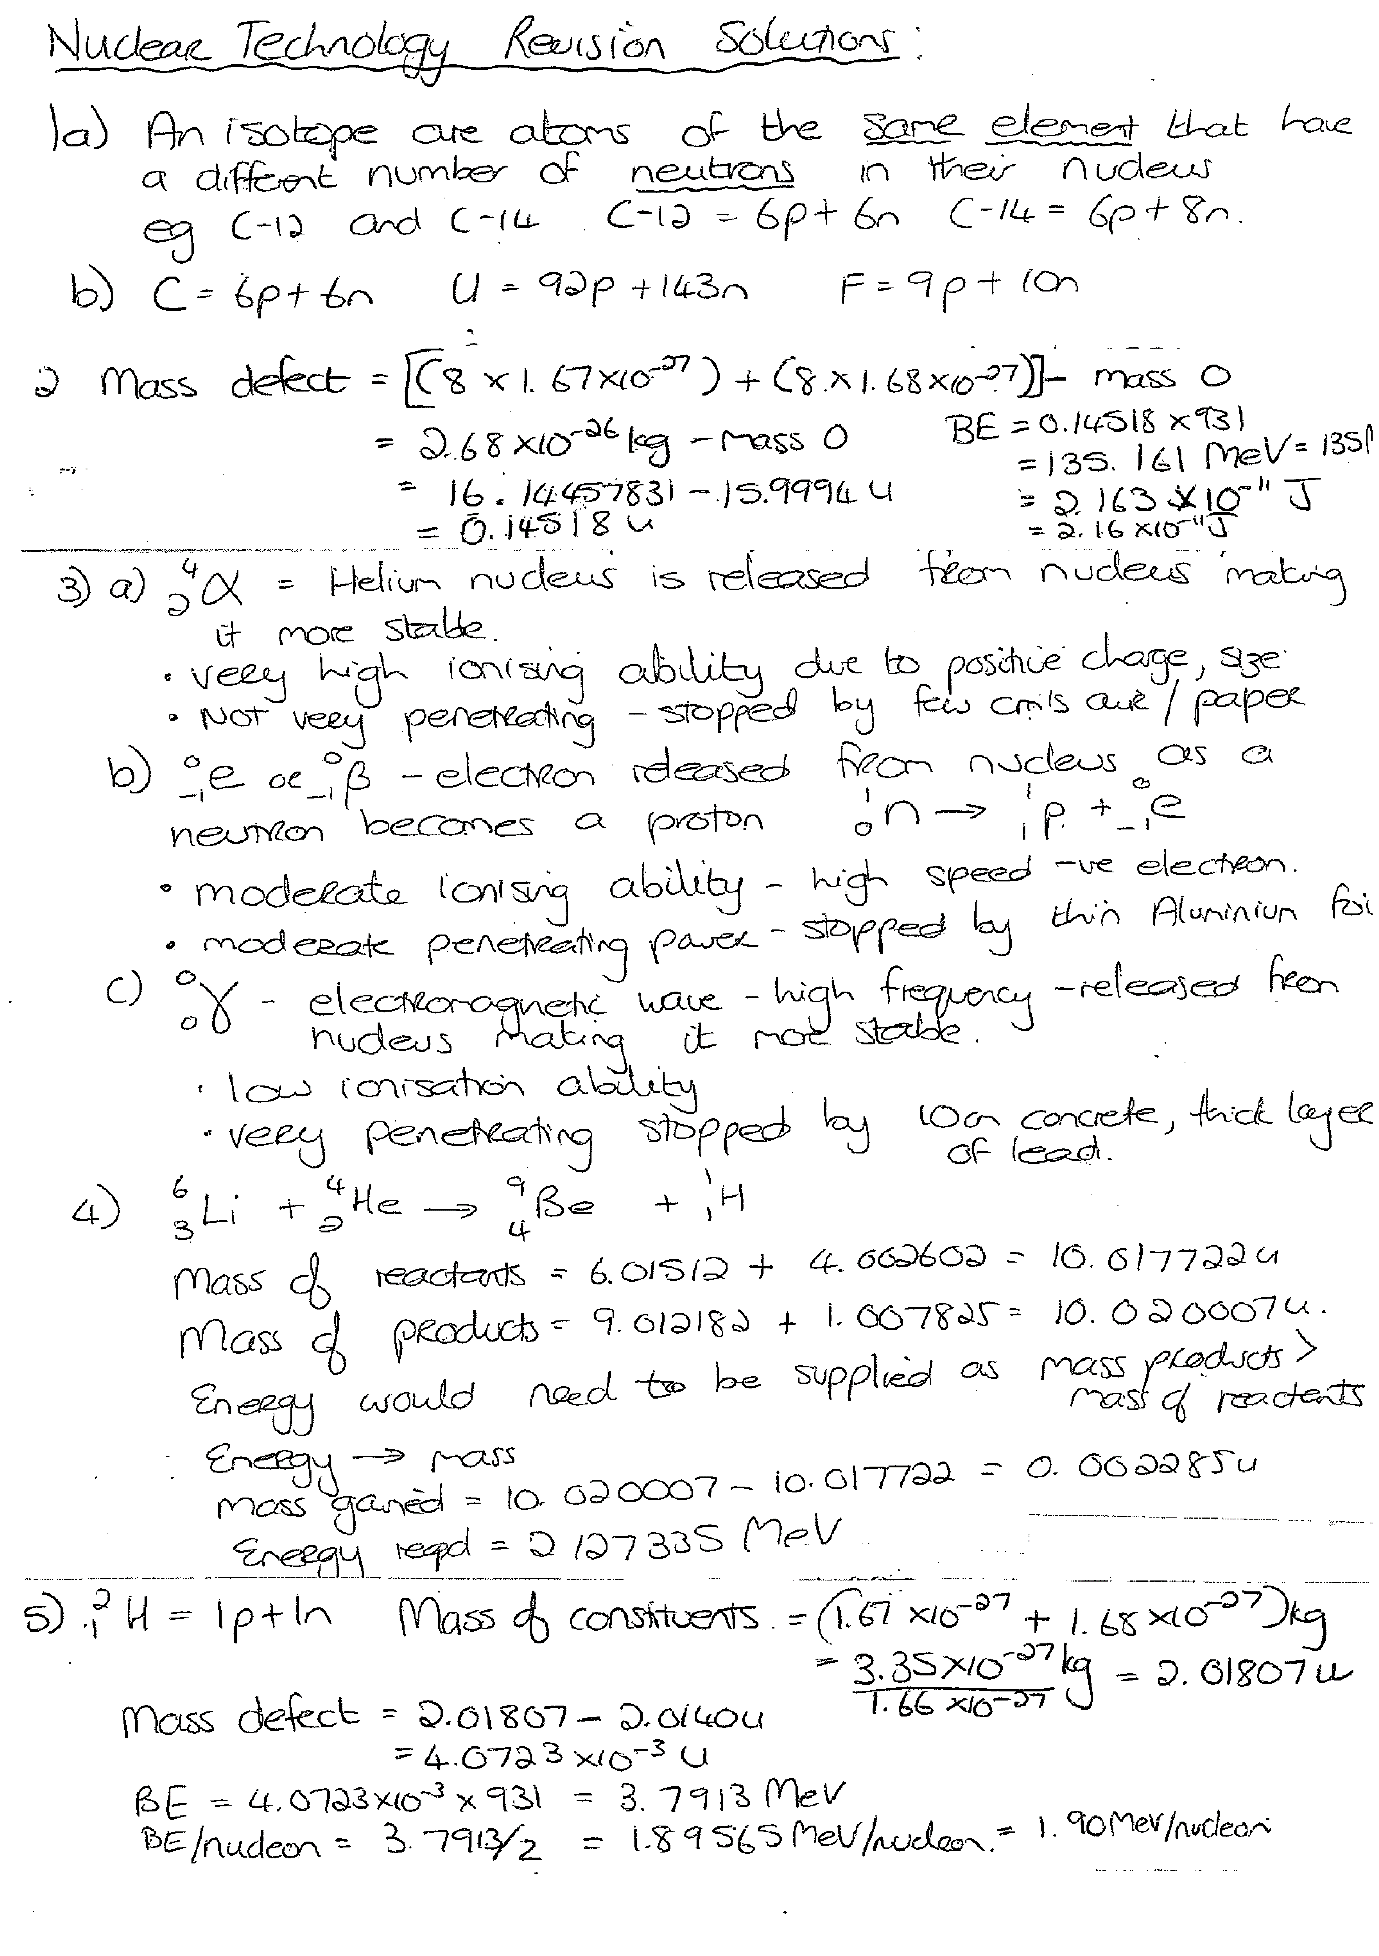 Nuclear Technology Revision Solutions:
1a) An isotope are atoms of the same element that have
a different number of neutrons in their nucleus
eg C-12 and C-14 C-12 = 6p + 6n C-14 = 6p + 8n.
b) C = 6p + 6n U = 92p + 143n F = 9p + 10n
2 Mass defect = [(8 x 1.67x10⁻²⁷) + (8.x1.68x10⁻²⁷)] - mass O
= 2.68 x10⁻²⁶ kg - mass O
= 16.14457831 - 15.9994 u
= 0.14518 u
BE = 0.14518 x 931
= 135.161 MeV = 135M
= 2.163 x 10⁻¹¹ J
= 2.16 x10⁻¹¹ J
3) a) ⁴₂α = Helium nucleus is released from nucleus making
it more stable.
• very high ionising ability due to positive charge, size
• Not very penetrating - stopped by few cm's air / paper
b) ⁰₋₁e or ⁰₋₁β - electron released from nucleus as a
neutron becomes a proton ¹₀n → ¹₁p + ⁰₋₁e
• moderate ionising ability - high speed -ve electron.
• moderate penetrating power - stopped by thin Aluminium foi
c) ⁰₀γ - electromagnetic wave - high frequency - released from
nucleus making it more stable.
• low ionisation ability
• very penetrating stopped by 10cm concrete, thick layer
of lead.
4) ⁶₃Li + ⁴₂He → ⁹₄Be + ¹₁H
Mass of reactants = 6.01512 + 4.002602 = 10.017722u
Mass of products = 9.012182 + 1.007825 = 10.020007u.
Energy would need to be supplied as mass products >
mass of reactants
Energy → mass
mass gained = 10.020007 - 10.017722 = 0.002285u
Energy reqd = 2.127335 MeV
5) ²₁H = 1p + 1n Mass of constituents = (1.67 x10⁻²⁷ + 1.68 x10⁻²⁷)kg
= 3.35x10⁻²⁷ kg = 2.01807 u
1.66 x10⁻²⁷
Mass defect = 2.01807 - 2.0140u
= 4.0723 x10⁻³ u
BE = 4.0723x10⁻³ x 931 = 3.7913 MeV
BE/nucleon = 3.7913/2 = 1.89565 MeV/nucleon. = 1.90 MeV/nucleon